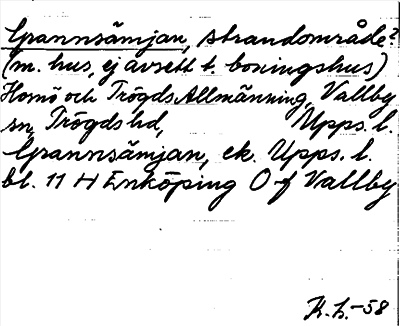 Grannsämjan, strandområde?
(m. hus, ej avsett t. boningshus)
Homö och Trögds Allmänning, Vallby
sn, Trögds hd, Upps. l.
Grannsämjan, ek. Upps. l.
bl. 11 H Enköping O f Vallby
K. L. -58